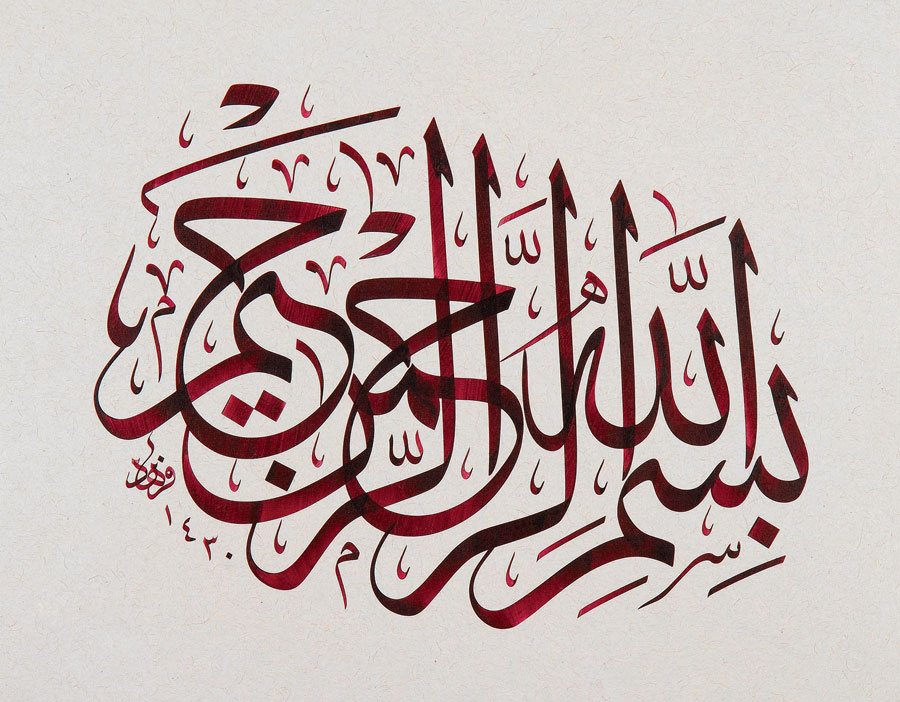 بِسْمِ اللَّهِ الرَّحْمٰنِ الرَّحِيمِ
١٤٣٠